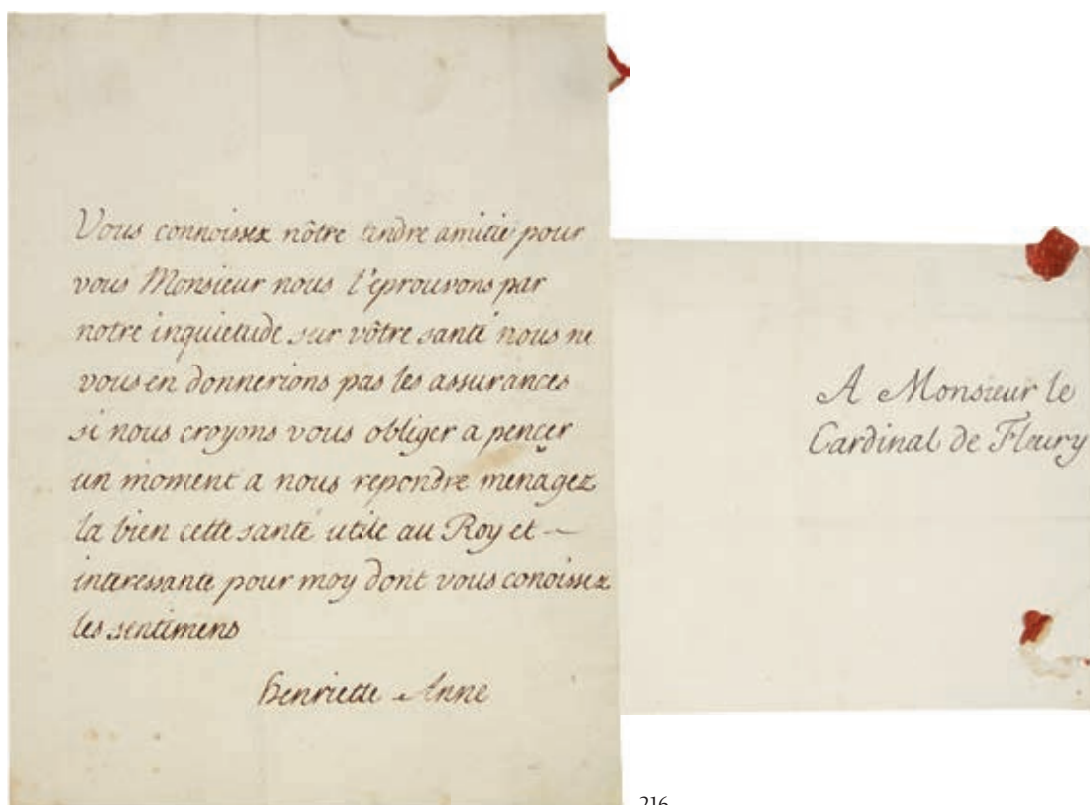 Vous connoissez nôtre tendre amitié pour
vous Monsieur nous l'eprouvons par
notre inquietude sur vôtre santé nous ne
vous en donnerions pas les assurances
si nous croyons vous obliger a pençer
un moment a nous repondre menagez
la bien cette santé utile au Roy et —
interessante pour moy dont vous conoissez
les sentimens
henriette Anne
A Monsieur le
Cardinal de Fleury
216